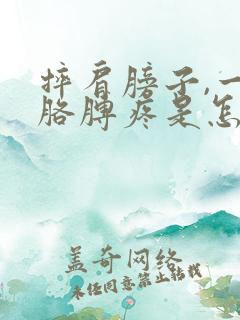 摔肩膀子,一
胳膊疼是怎
盖奇网络
未经同意禁止转载